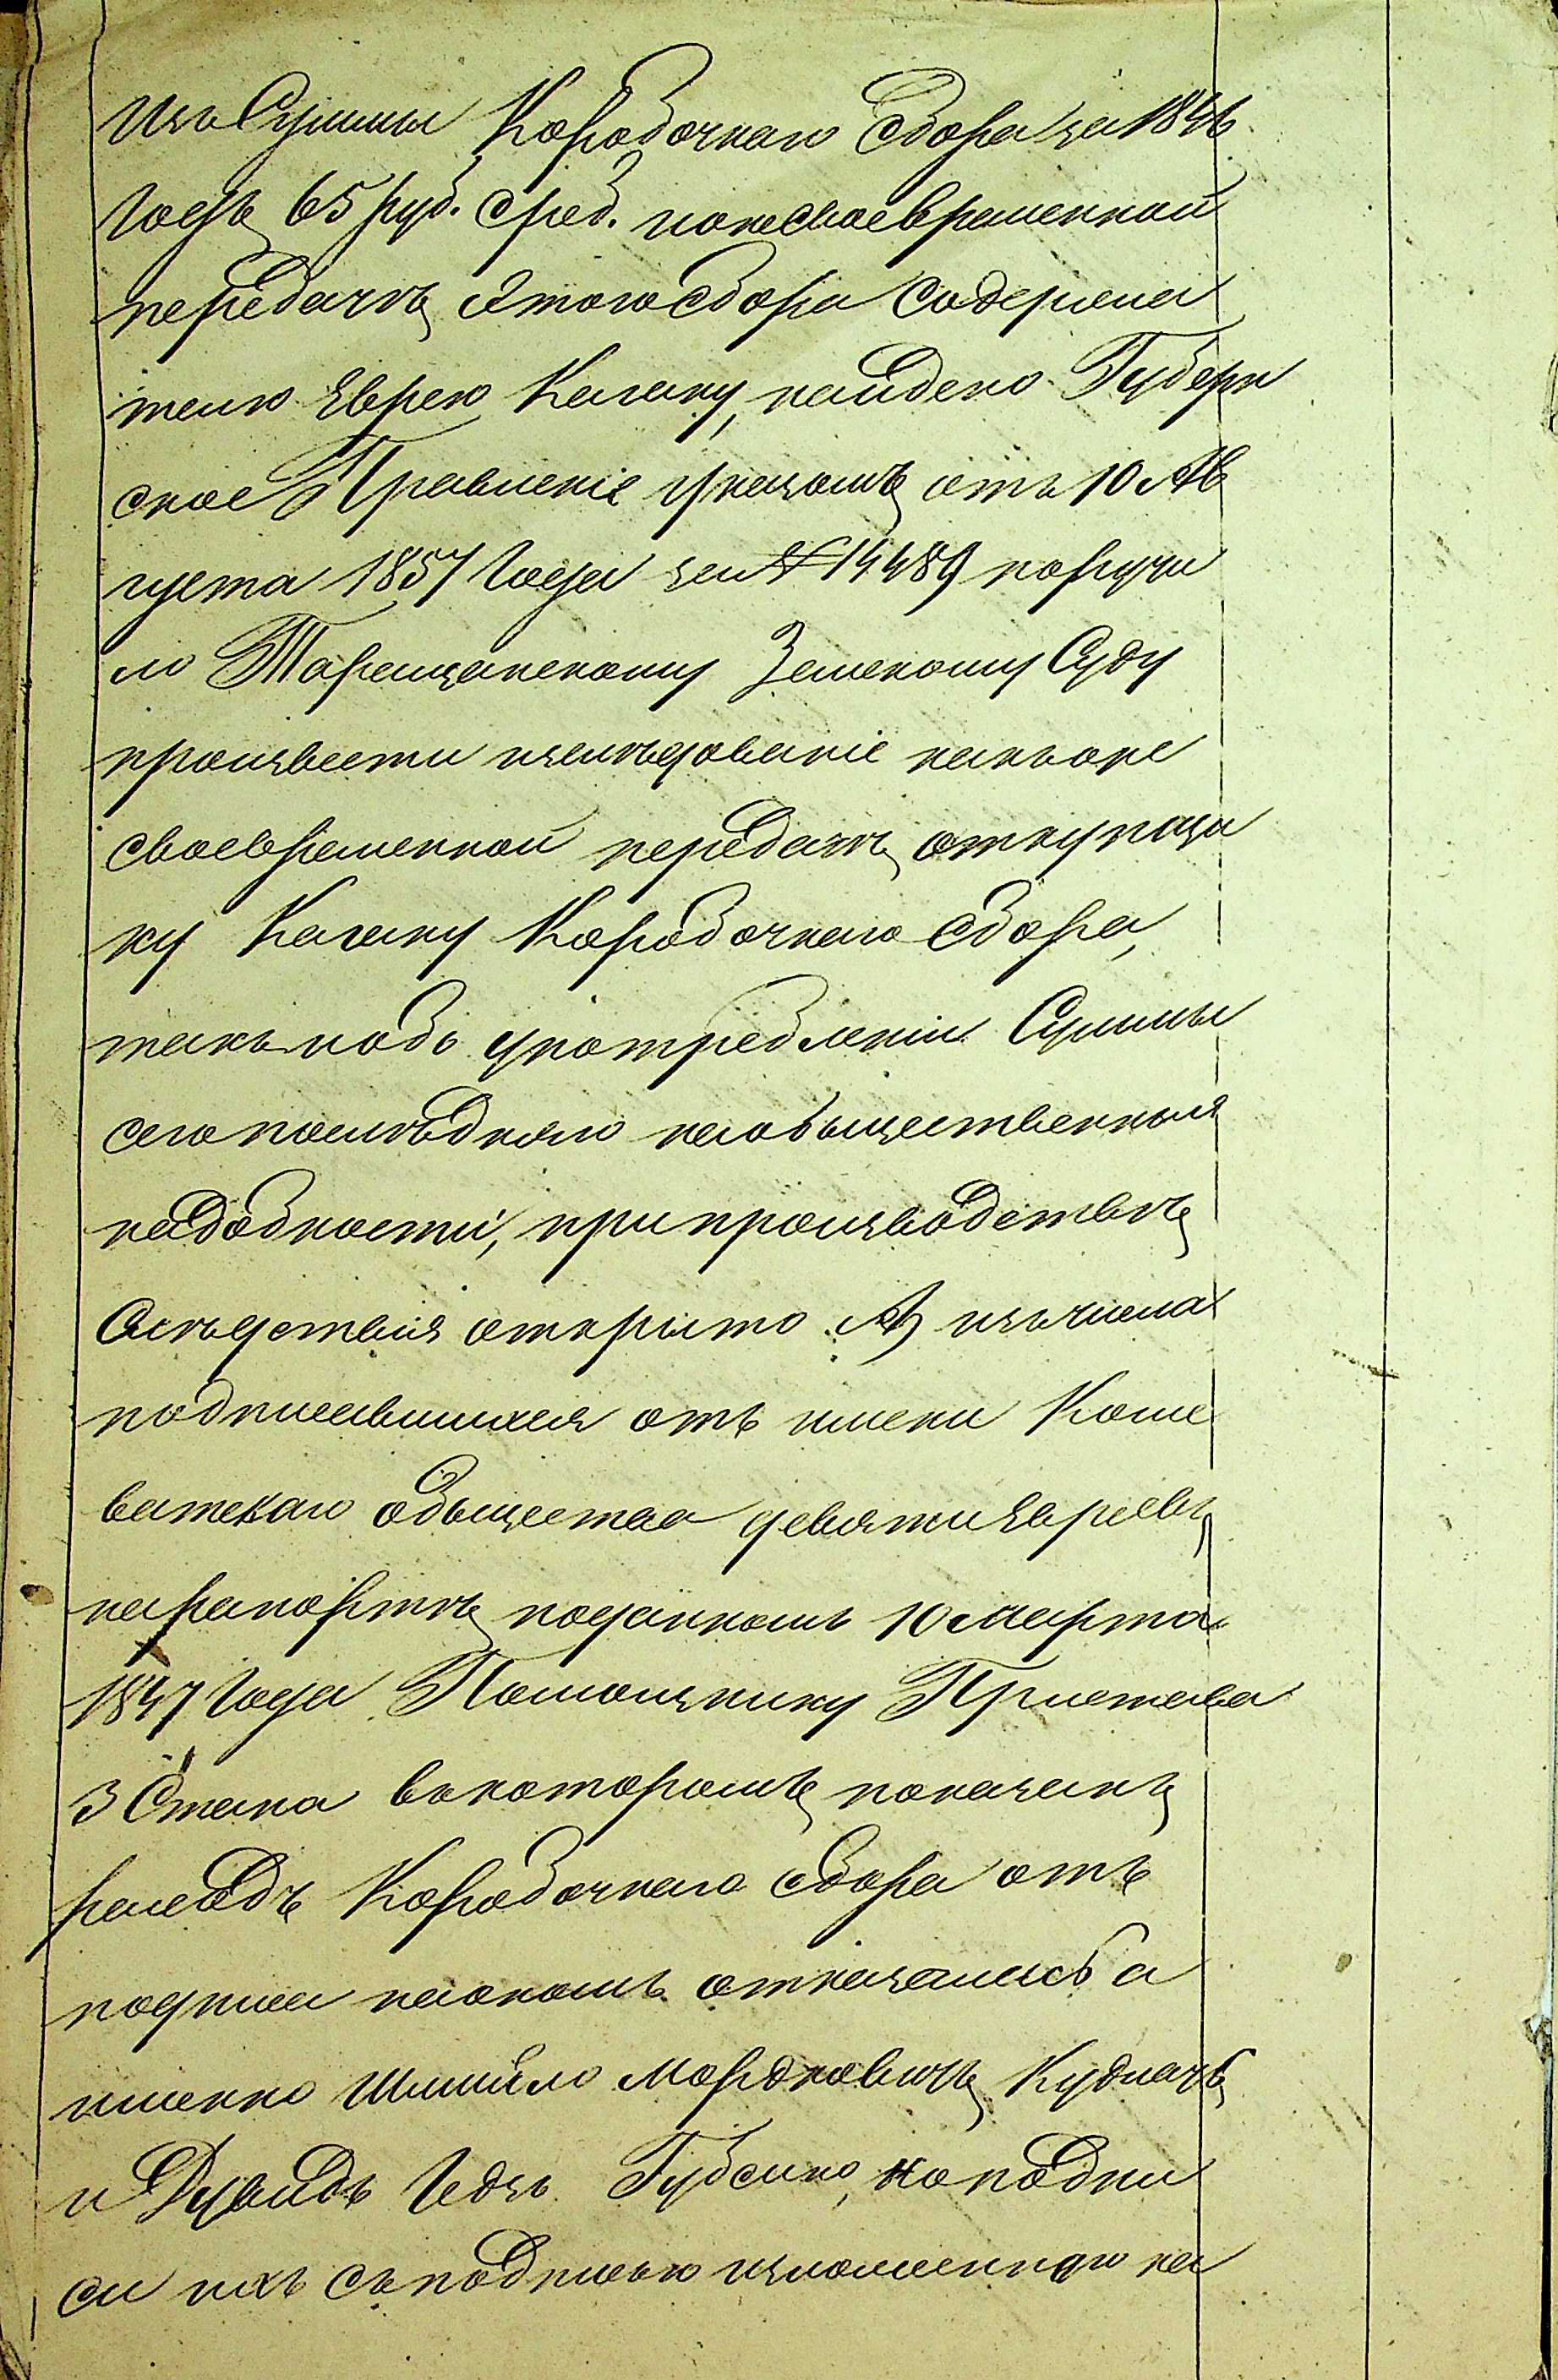 изъ Суммы Коробочнаго Сбора за 1846
годъ 65 руб. Среб. по несвоевременной
передачѣ этого сбора Содержа
телю Еврею Кагану, найдено Губерн
ское Правленіе указомъ отъ 10 Ав
густа 1857 года за № 14489 поручи
ло Таращанскому Земскому Суду
произвести изслѣдованіе какъ о не
своевременной передачѣ откупщи
ку Кагану Коробочнаго сбора,
такъ и объ употребленіи Суммы
сего послѣдняго на обыщественныя
надобности, при производствѣ
Слѣдствія открыто А) изъ числа
подписавшихся отъ имени Коше
ватскаго обыщества девяти Евреевъ,
на рапортѣ поданномъ 10 марта
1847 года Помощнику Пристава
3 Стана въ которомъ показанъ
расходъ Коробочнаго сбора отъ
подписи на ономъ отказались а
именно Шмуйло Мордковичъ Кудлачъ
и Дувидъ Іодзь Губсико, но подпи
си ихъ съ подписью изложенною на